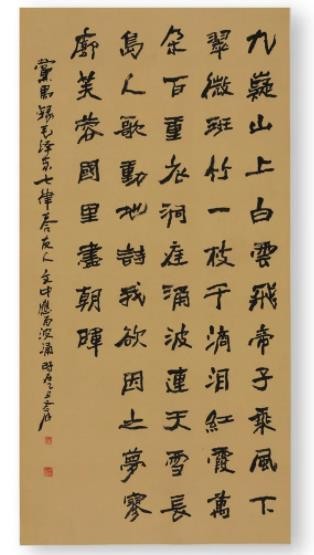 九嶷山上白雲飛帝子乘風下
翠微斑竹一枝千滴泪紅霞萬
朵百重衣洞庭涌波連天雪長
島人歌動地詩我欲因之夢寥
廓芙蓉國里盡朝暉
録毛泽东七律答友人 文中應为波涌